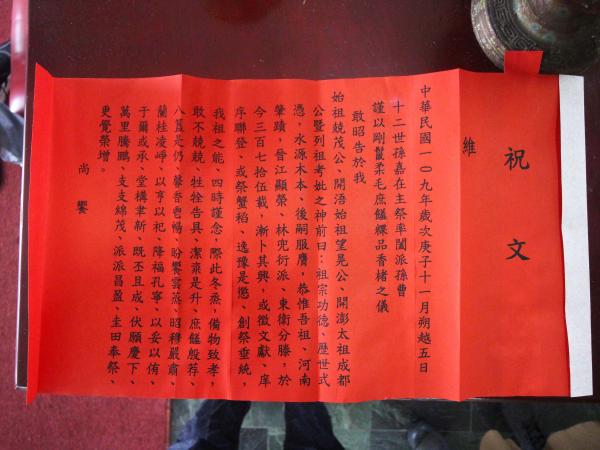 祝文
維
中華民國一○九年歲次庚子十一月朔越五日
十二世孫嘉在主祭率闔派孫曹
謹以剛鬣柔毛庶饈粿品香楮之儀
敢昭告於我
始祖兢茂公、開浯始祖望晃公、開澎太祖成都
公暨列祖考妣之神前曰：祖宗功德、歷世式
憑，水源木本、後嗣服膺，恭惟吾祖、河南
肇蹟，晉江顯榮、林兜衍派、東衛分賸，於
今三百七拾伍載，漸卜其興、或徵文獻、庠
序聯登、或祭蟹稻、逸豫是懲、創祭垂統，
我祖之能、四時謹念，際此冬蒸，備物致孝，
敢不兢兢、牲牷告具、潔粢是升、庶饈殷荐、
八簋是仍、馨香鬯暢、盼饗雲蒸、昭穆嚴肅、
蘭桂凌崢，以亨以祀、降福孔寧、以妥以侑、
于爾或承、堂構聿新、既丕且成、伏願慶下、
萬里騰鵬，支支綿茂、派派昌盈、圭田奉祭、
更覺榮增。
尚饗